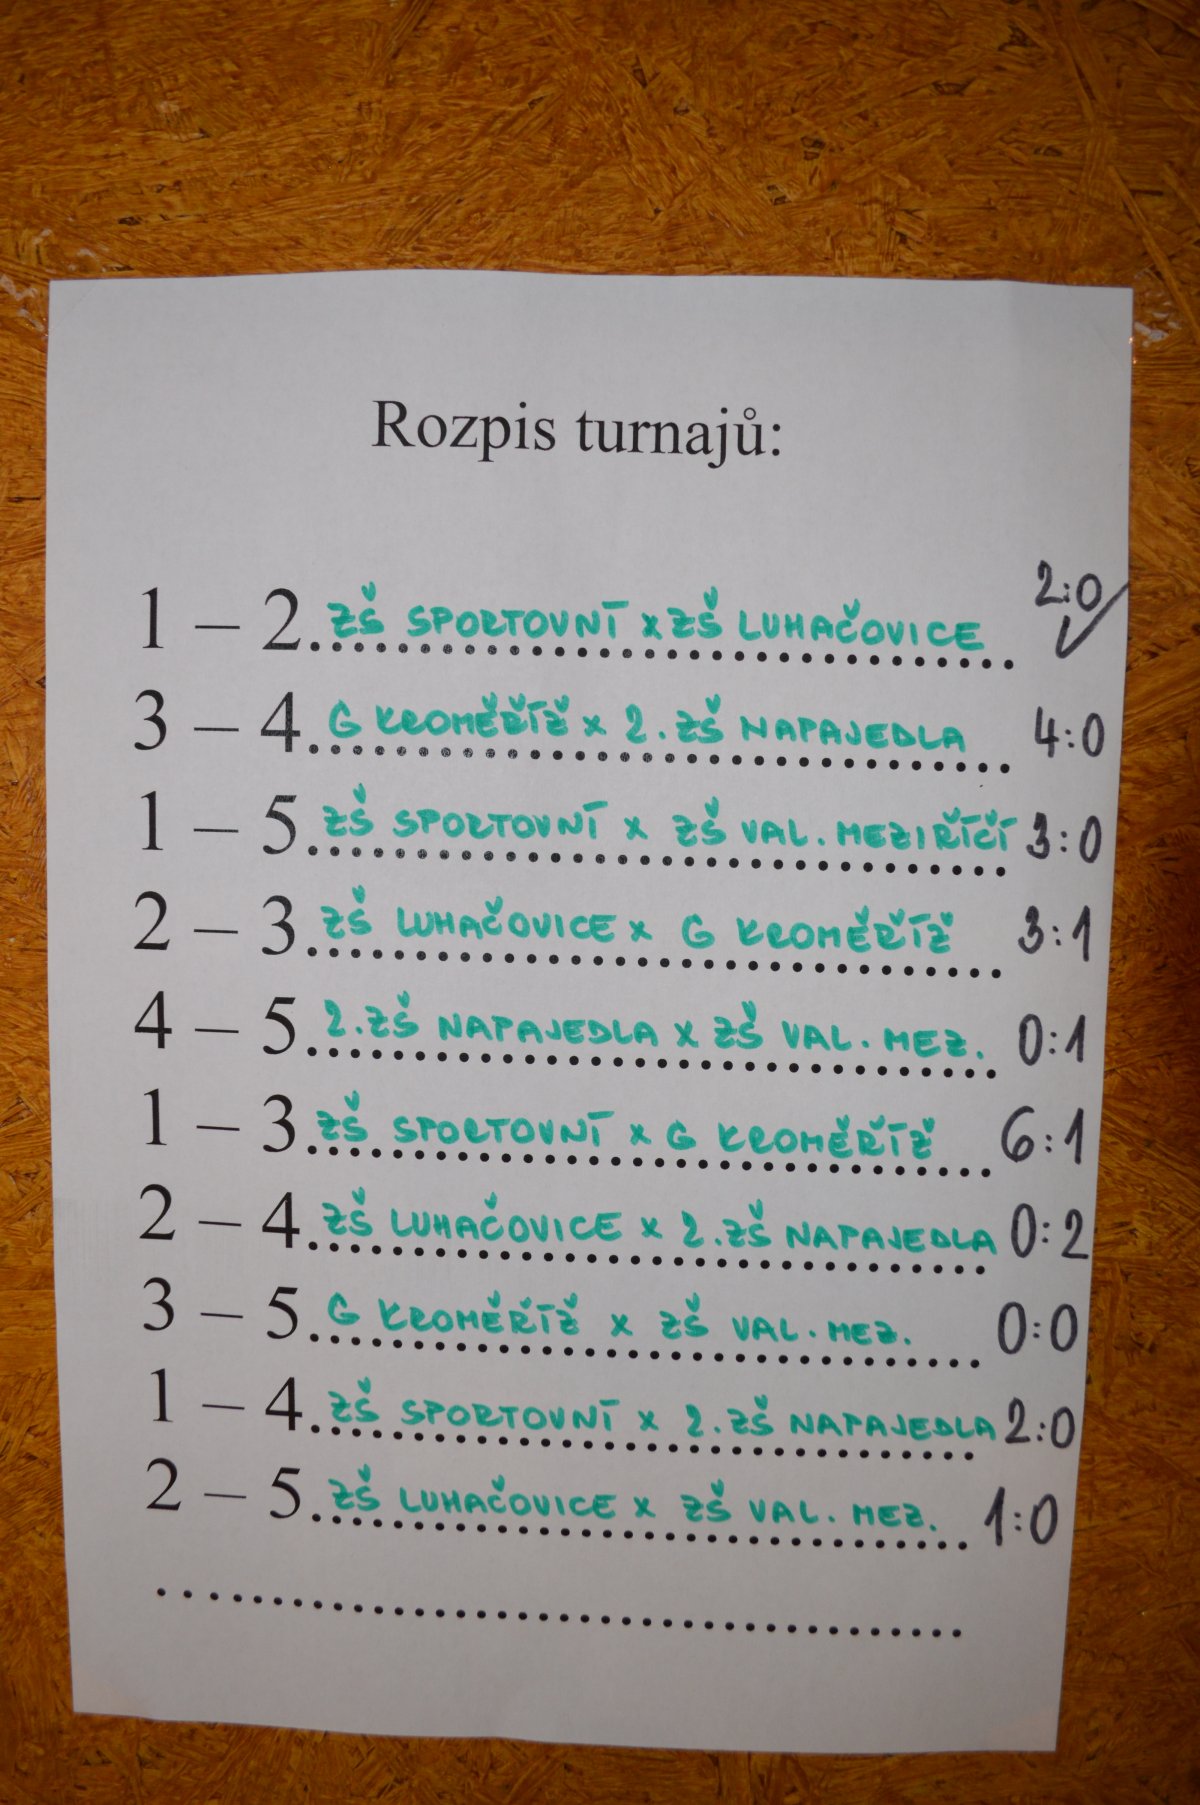 Rozpis turnajů:
1 – 2 ZŠ SPORTOVNÍ x ZŠ LUHAČOVICE 2:0 ✓
3 – 4 G KROMĚŘÍŽ x 2. ZŠ NAPAJEDLA 4:0
1 – 5 ZŠ SPORTOVNÍ x ZŠ VAL. MEZIŘÍČÍ 3:0
2 – 3 ZŠ LUHAČOVICE x G KROMĚŘÍŽ 3:1
4 – 5 2. ZŠ NAPAJEDLA x ZŠ VAL. MEZ. 0:1
1 – 3 ZŠ SPORTOVNÍ x G KROMĚŘÍŽ 6:1
2 – 4 ZŠ LUHAČOVICE x 2. ZŠ NAPAJEDLA 0:2
3 – 5 G KROMĚŘÍŽ x ZŠ VAL. MEZ. 0:0
1 – 4 ZŠ SPORTOVNÍ x 2. ZŠ NAPAJEDLA 2:0
2 – 5 ZŠ LUHAČOVICE x ZŠ VAL. MEZ. 1:0